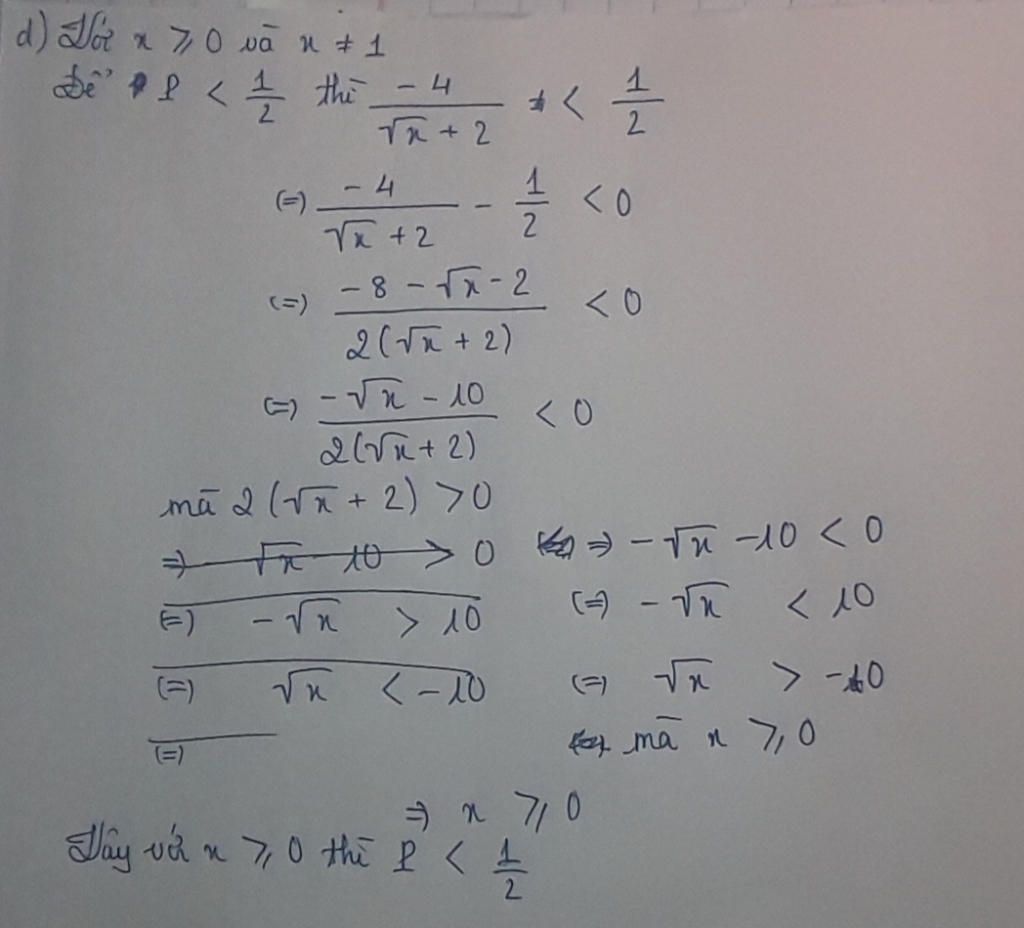 d) Với x ⩾ 0 và x ≠ 1
Để P < 1/2 thì -4/(√x + 2) < 1/2
(=) -4/(√x + 2) - 1/2 < 0
(=) (-8 - √x - 2)/(2(√x + 2)) < 0
(=) (-√x - 10)/(2(√x + 2)) < 0
mà 2(√x + 2) > 0
⇒ √x 10 > 0 ⇒ -√x - 10 < 0
(=) -√x > 10 (=) -√x < 10
(=) √x < -10 (=) √x > -10
(=) mà x ⩾ 0
⇒ x ⩾ 0
Vậy với x ⩾ 0 thì P < 1/2